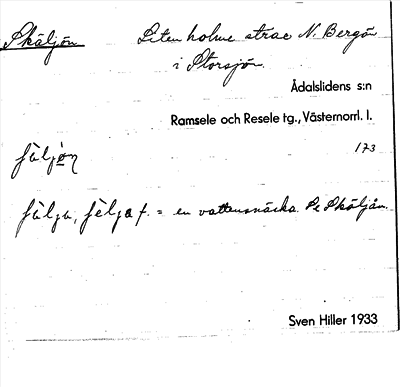 Skäljön
Liten holme strax N. Bergön
i Storsjön.
Ådalslidens s:n
Ramsele och Resele tg., Västernorrl. l.
173
fälga, fèlga f. = en vattensnäcka. Se Skäljån.
Sven Hiller 1933